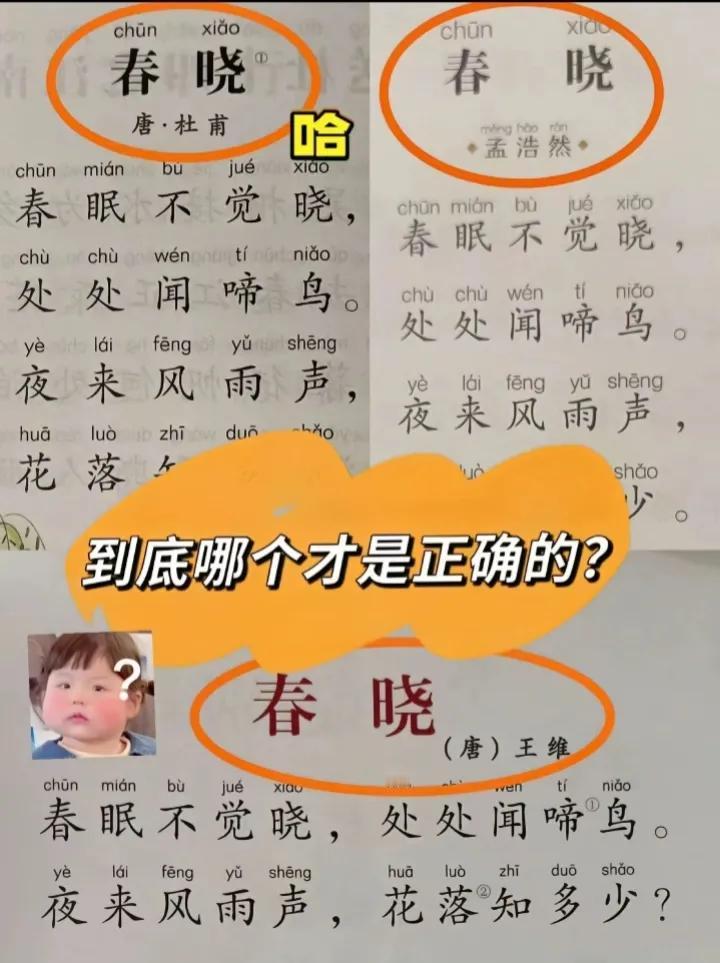 chūn xiǎo
春晓①
唐·杜甫
chūn mián bù jué xiǎo
春眠不觉晓，
chù chù wén tí niǎo
处处闻啼鸟。
yè lái fēng yǔ shēng
夜来风雨声，
huā luò zhī duō shǎo
花落
哈
chūn xiǎo
春晓
mèng hào rán
孟浩然
chūn mián bù jué xiǎo
春眠不觉晓，
chù chù wén tí niǎo
处处闻啼鸟。
yè lái fēng yǔ shēng
夜来风雨声，
luò shǎo
少。
到底哪个才是正确的？
?
春晓
（唐）王维
chūn mián bù jué xiǎo chù wén tí niǎo
春眠不觉晓，处处闻啼①鸟。
yè lái fēng yǔ shēng huā luò zhī duō shǎo
夜来风雨声，花落②知多少？